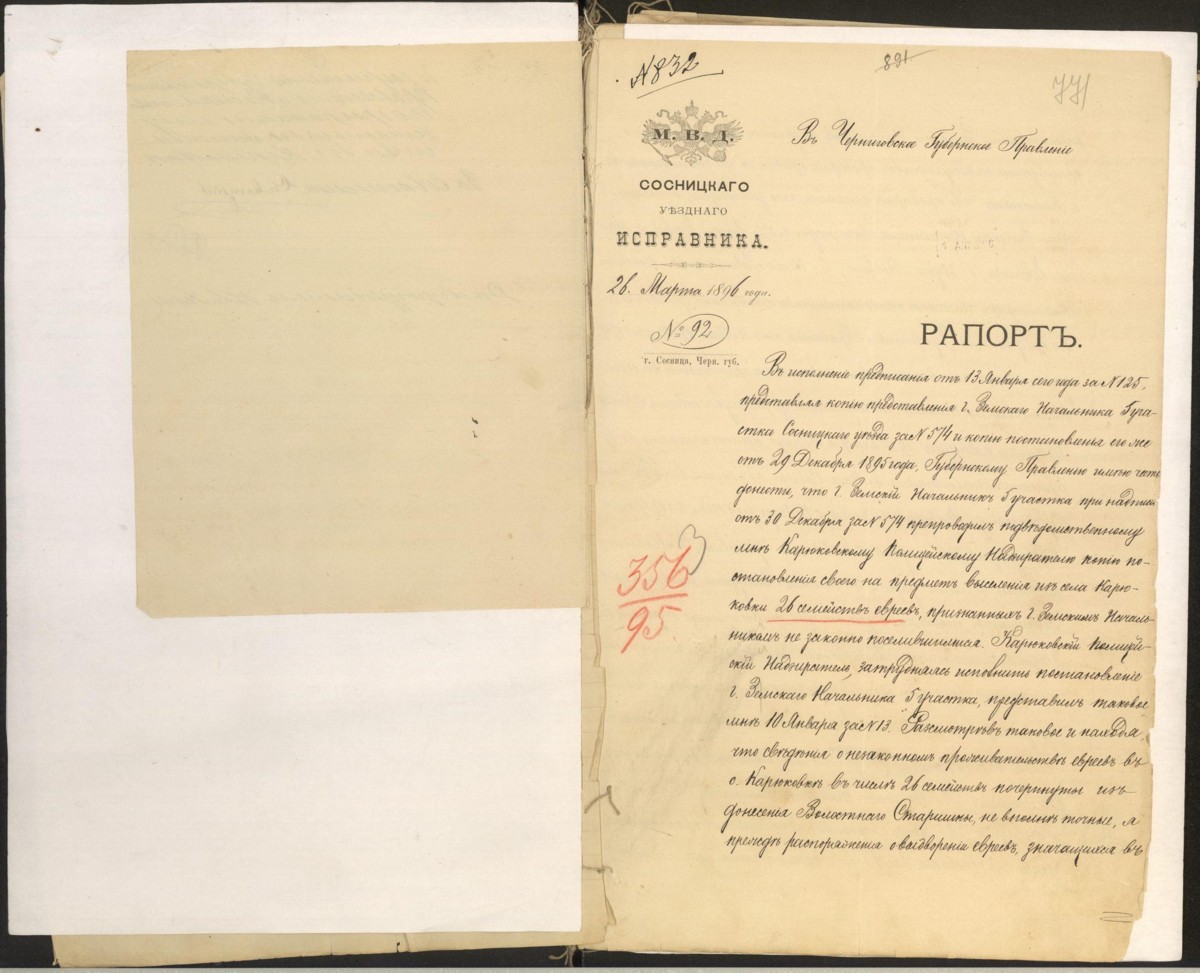 N832
891
771
М. В. Д.
СОСНИЦКАГО
УѢЗДНАГО
ИСПРАВНИКА.
26. Марта 1896 года.
№ 92
г. Сосница, Черн. губ.
Въ Черниговское Губернское Правленіе
РАПОРТЪ.
Въ исполненіе предписанія отъ 13 Января сего года за N 125,
представляя копію представленія г. Земскаго Начальника 5 уча-
стка Сосницкаго уѣзда за N 574 и копію постановленія его же
отъ 29 Декабря 1895 года, Губернскому Правленію имѣю честь
донести, что г. Земскій Начальникъ 5 участка при надписи
отъ 30 Декабря за N 574 препроводилъ подвѣдомственному
мнѣ Карюковскому Полицейскому Надзирателю копію по-
становленія своего на предметъ выселенія изъ села Карю-
ковки 26 семействъ евреевъ, признанныхъ г. Земскимъ Началь-
никомъ не законно поселившимися. Карюковскій Полицей-
скій Надзиратель, затрудняясь исполнить постановленіе
г. Земскаго Начальника 5 участка, представилъ таковое
мнѣ 10 Января за N 13. Разсмотрѣвъ таковое и находя,
что свѣдѣнія о незаконномъ проживательствѣ евреевъ въ
с. Карюковкѣ въ числѣ 26 семействъ почерпнуты изъ
донесенія Волостнаго Старшины, не вполнѣ точные, я
прежде распоряженія о выдвореніи евреевъ, значащихся въ
3
356
95